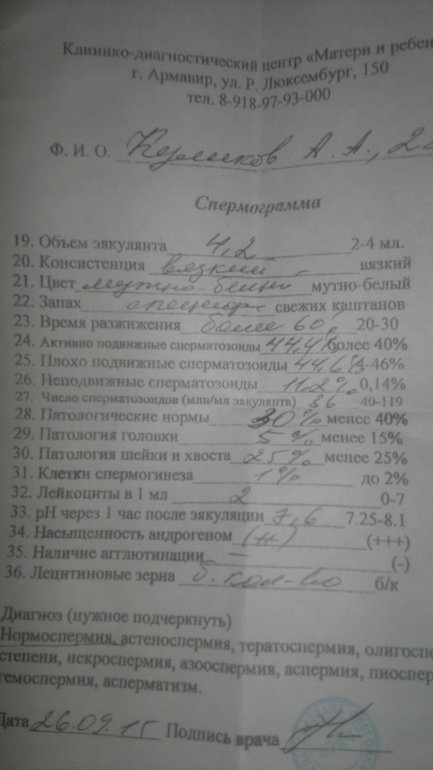 Клинико-диагностический центр «Матери и ребен
г. Армавир, ул. Р. Люксембург, 150
тел. 8-918-97-93-000
Ф. И. О. А. А.,
Спермограмма
19. Объем эякулянта 4,2 2-4 мл.
20. Консистенция вязкий вязкий
21. Цвет мутно-белый мутно-белый
22. Запах специф. свежих каштанов
23. Время разжижения более 60 20-30
24. Активно подвижные сперматозоиды 44,4% более 40%
25. Плохо подвижные сперматозоиды 44,6% -46%
26. Неподвижные сперматозоиды 11,2% 0,14%
27. Число сперматозоидов (млн/мл эякулянта) 36 40-119
28. Патологические нормы 30% менее 40%
29. Патология головки 5% менее 15%
30. Патология шейки и хвоста 25% менее 25%
31. Клетки спермогинеза 1% до 2%
32. Лейкоциты в 1 мл 2 0-7
33. pH через 1 час после эякуляции 7,6 7.25-8.1
34. Насыщенность андрогеном (+++)
35. Наличие агглютинации — (-)
36. Лецитиновые зерна б. кол-во б/к
Диагноз (нужное подчеркнуть)
Нормоспермия, астеноспермия, тератоспермия, олигоспе
степени, некроспермия, азооспермия, аспермия, пиоспер
гемоспермия, асперматизм.
Дата 26.09.15 Подпись врача